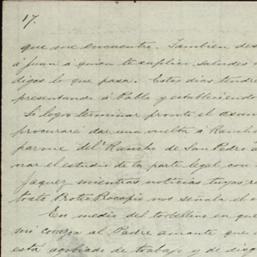 17.
que me encuentro. Tambien des
á Juan á quien te suplico saludes
digas lo que pasa. Estos dias tendré
presentando á Pablo y estableciendo
Si logro terminar pronto el asun
procuraré dar una vuelta á Rancho
parame del Rancho de San Pedro
nar el estudio de la parte legal con
Jaquez mientras noticias tuyas re
 nos señala el
En medio del torbellino en que
mi corazon al Padre amante que
está agobiado de trabajo y de disg